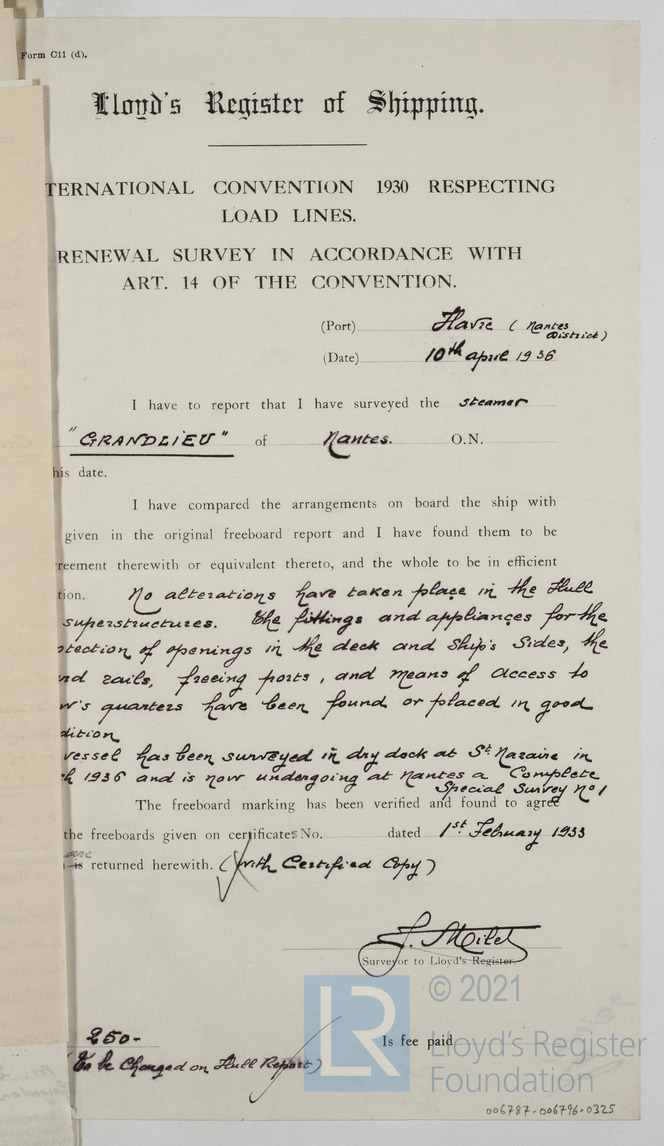 Form C11 (d).
Lloyd's Register of Shipping.
TERNATIONAL CONVENTION 1930 RESPECTING
LOAD LINES.
RENEWAL SURVEY IN ACCORDANCE WITH
ART. 14 OF THE CONVENTION.
(Port) Havre (Nantes District)
(Date) 10th april 1936
I have to report that I have surveyed the steamer
"GRANDLIEU" of Nantes. O.N.
his date.
I have compared the arrangements on board the ship with
given in the original freeboard report and I have found them to be
reement therewith or equivalent thereto, and the whole to be in efficient
tion. No alterations have taken place in the Hull
superstructures. The fittings and appliances for the
otection of openings in the deck and ship's sides, the
rd rails, freeing ports, and means of access to
w's quarters have been found or placed in good
dition
vessel has been surveyed in dry dock at St. Nazaire in
h 1936 and is now undergoing at Nantes a Complete
Special Survey No 1
The freeboard marking has been verified and found to agree
the freeboards given on certificates No. dated 1st February 1933
are
is returned herewith. (with Certified Copy)
J. Milet
Surveyor to Lloyd's Register.
250-
Is fee paid
(To be Charged on Hull Report)
© 2021
LR
Lloyd's Register
Foundation
006787-006796-0325